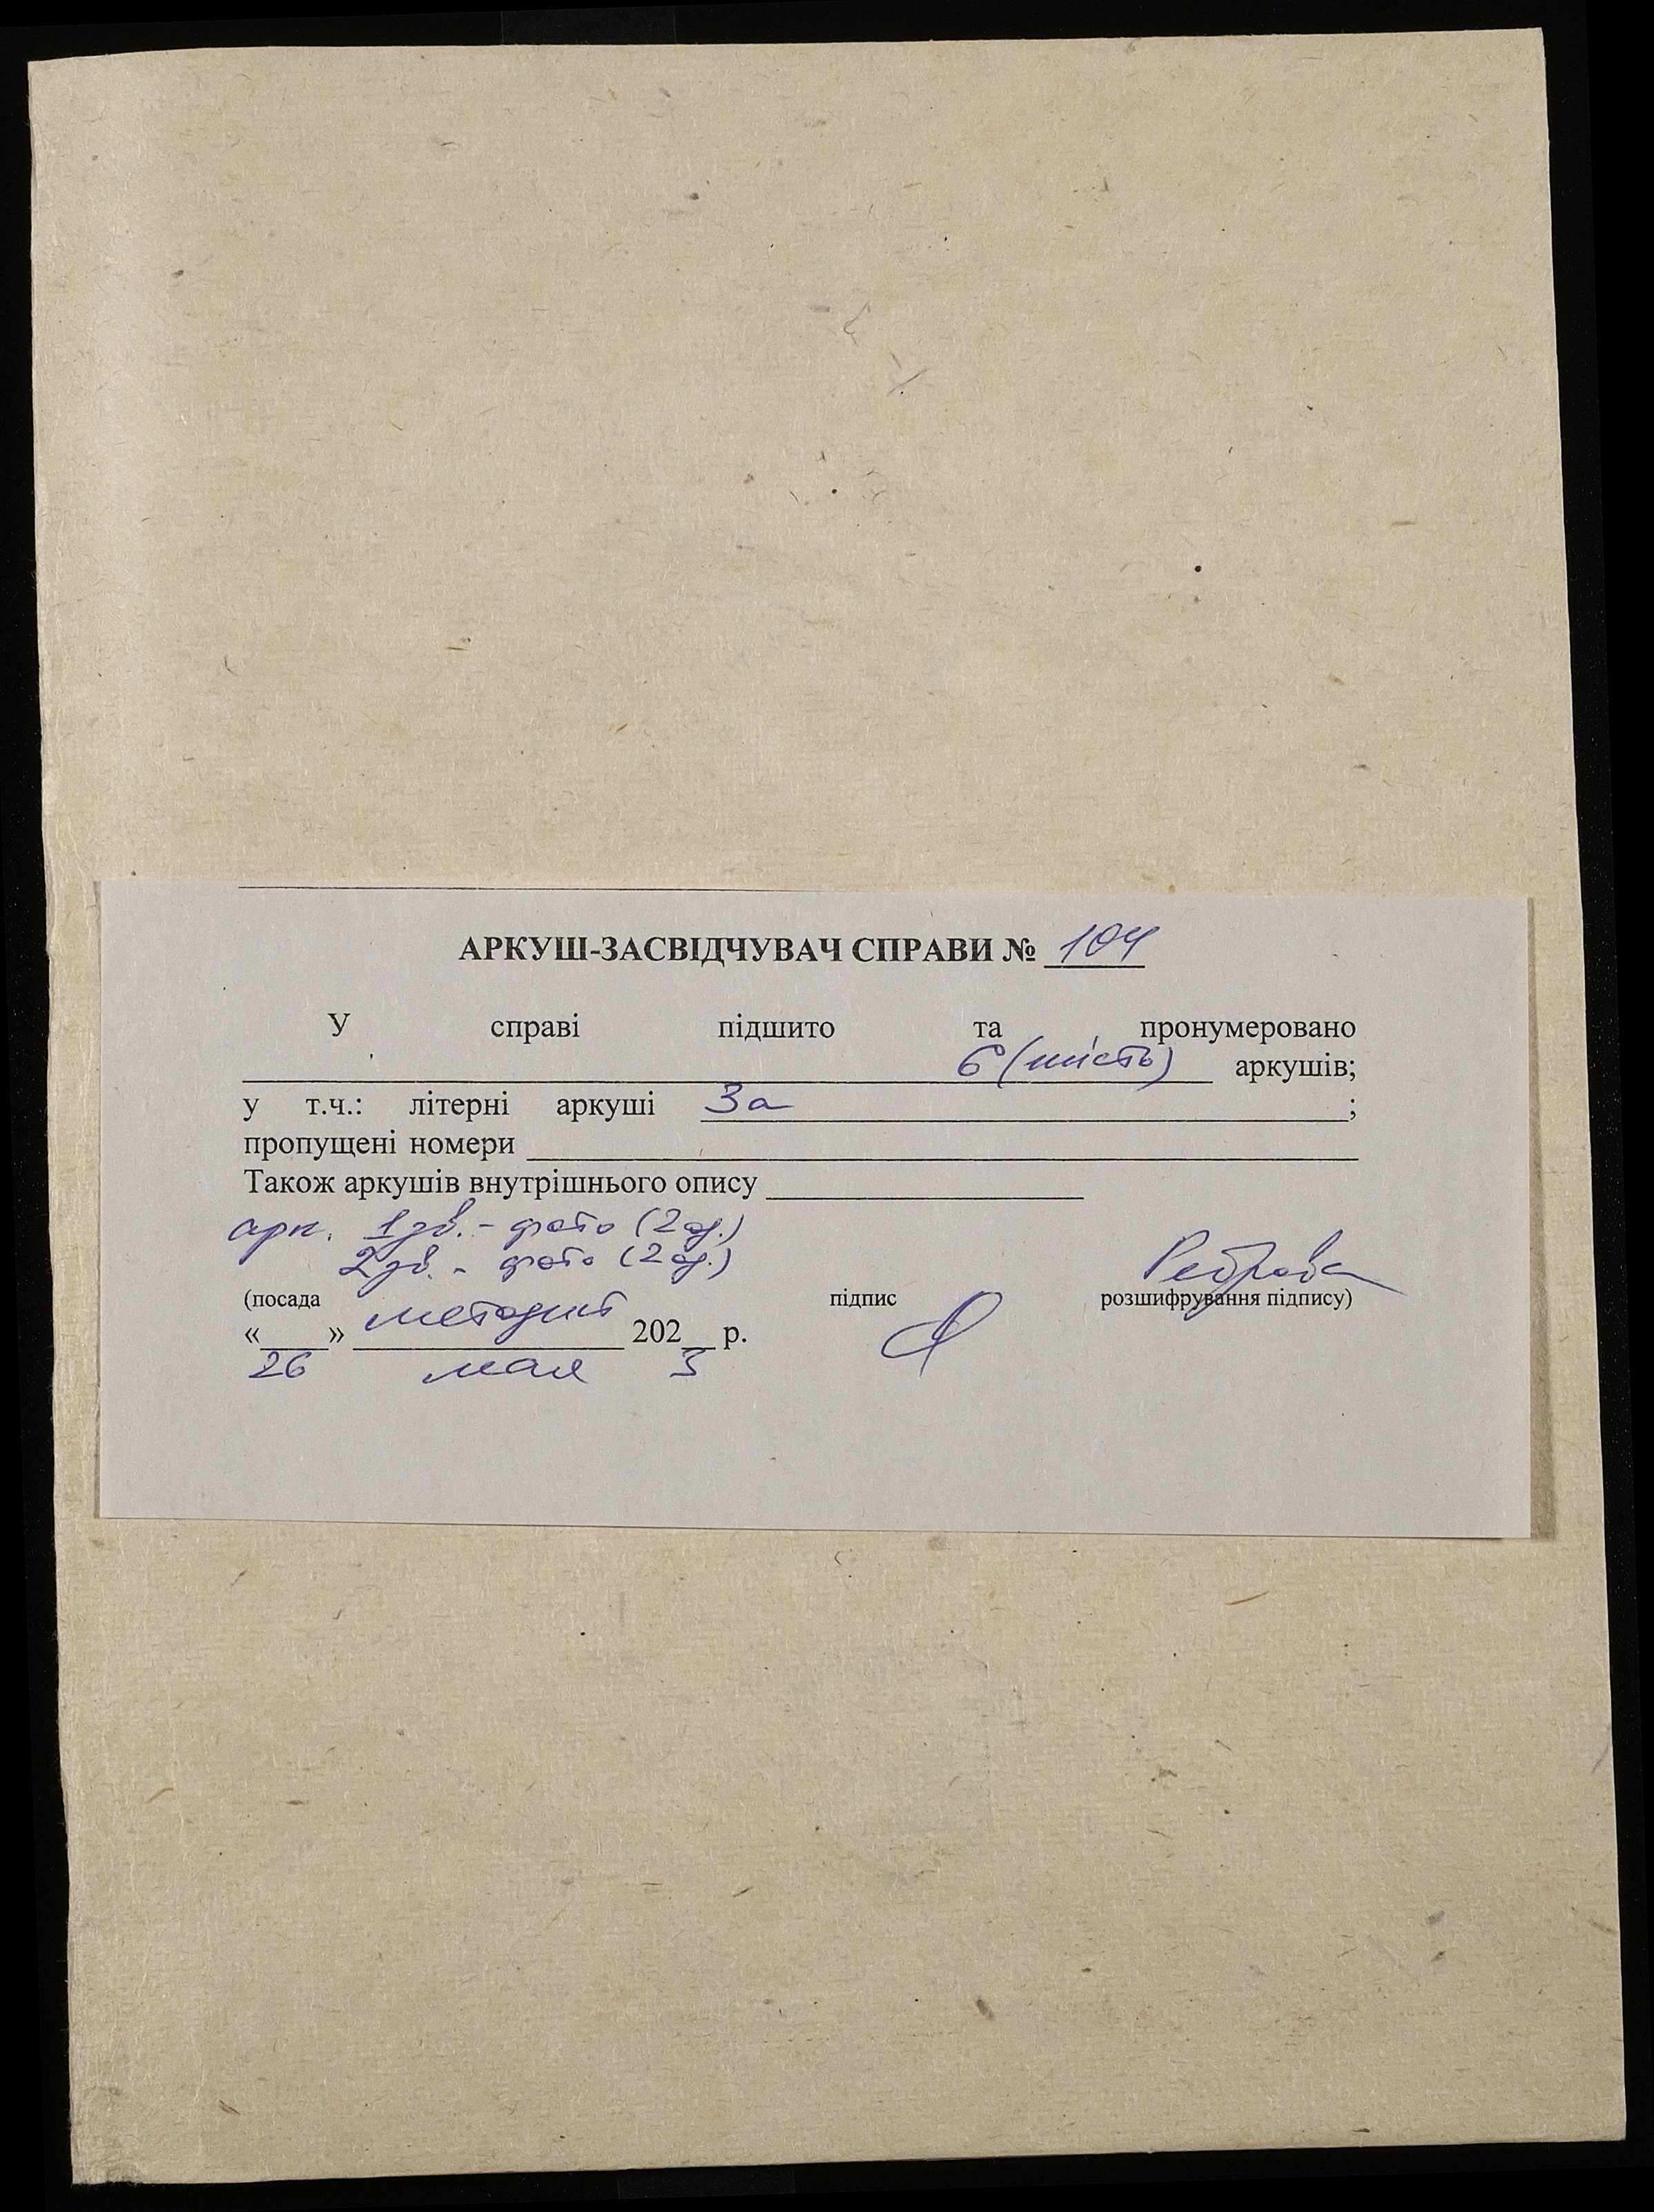 АРКУШ-ЗАСВІДЧУВАЧ СПРАВИ № 104
У справі підшито та пронумеровано
6 (шість) аркушів;
у т.ч.: літерні аркуші 3а ;
пропущені номери
Також аркушів внутрішнього опису
арк. 1зв. - фото (2од.)
2зв. - фото (2од.)
(посада методист підпис Реброва розшифрування підпису)
«26» мая 2023 р.